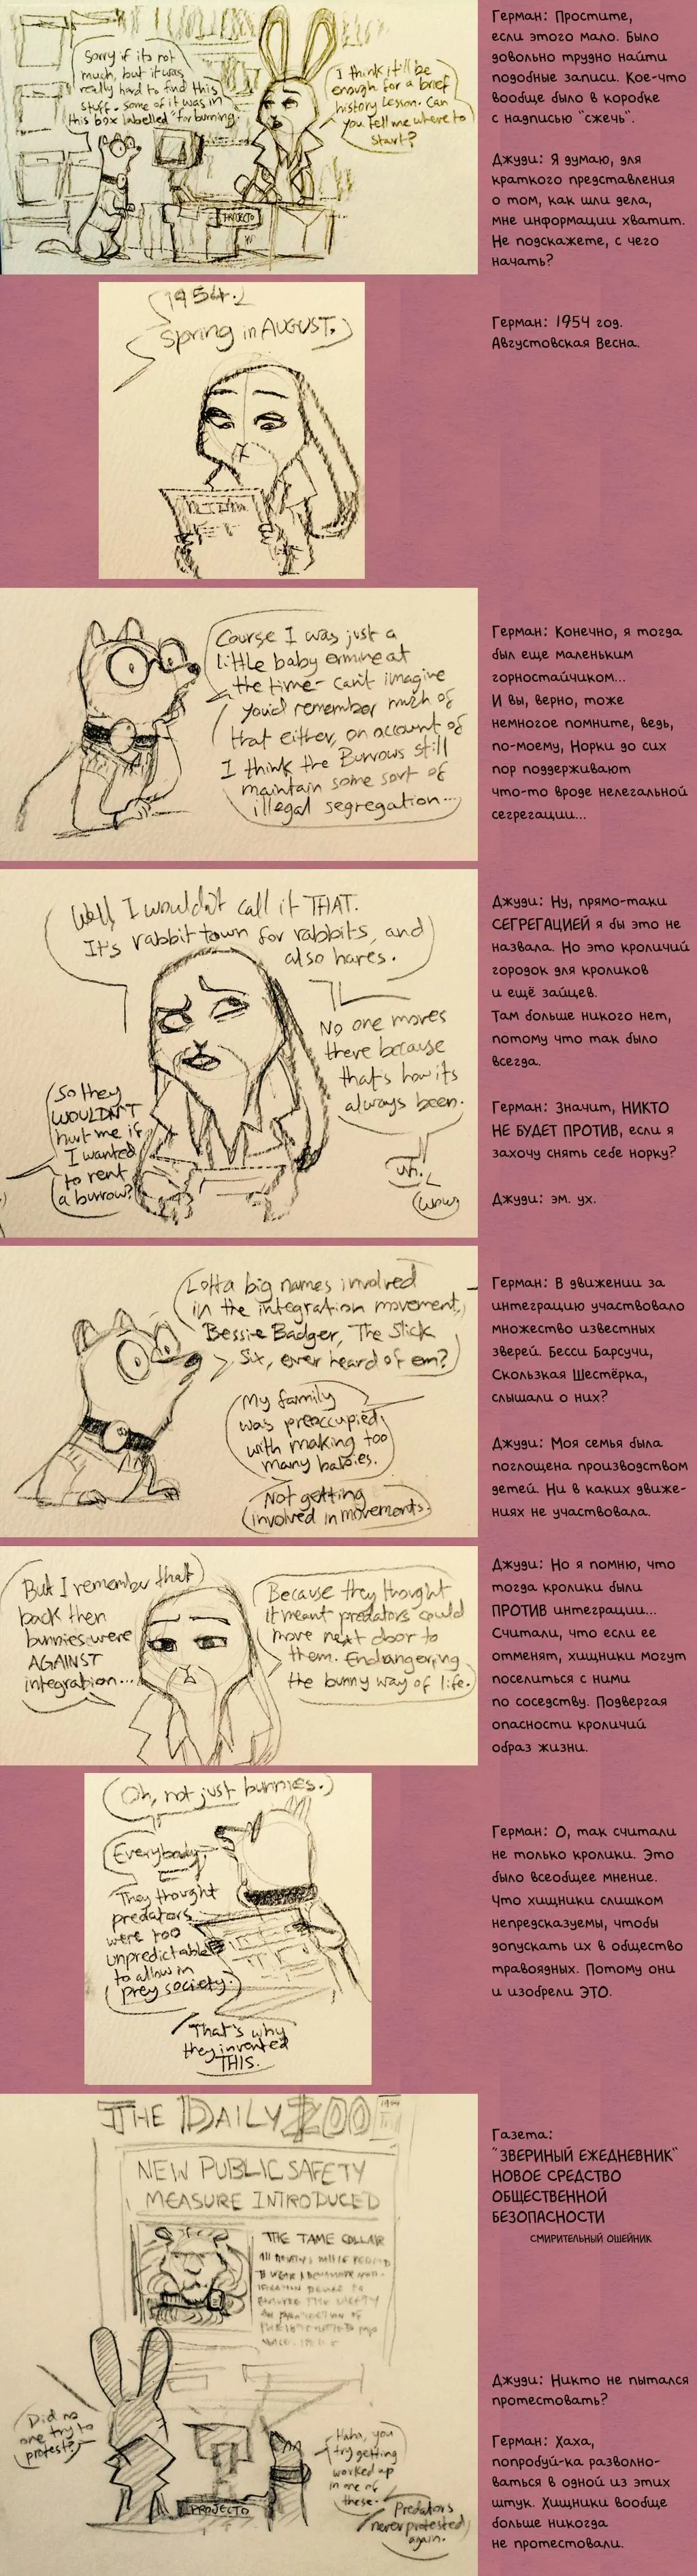 Sorry if its not
much, but it was
really hard to find this
stuff. some of it was in
this box labelled "for burning."
I think it'll be
enough for a brief
history lesson. Can
you tell me where to
start?
PROJECTO
Герман: Простите,
если этого мало. Было
довольно трудно найти
подобные записи. Кое-что
вообще было в коробке
с надписью "сжечь".
Джуди: Я думаю, для
краткого представления
о том, как шли дела,
мне информации хватит.
Не подскажете, с чего
начать?
1954.
Spring in AUGUST.
Герман: 1954 год.
Августовская Весна.
Course I was just a
little baby ermine at
the time- can't imagine
you'd remember much of
that either, on account of
I think the Burrows still
maintain some sort of
illegal segregation...
Герман: Конечно, я тогда
был еще маленьким
горностайчиком...
И вы, верно, тоже
немногое помните, ведь,
по-моему, Норки до сих
пор поддерживают
что-то вроде нелегальной
сегрегации...
Well, I wouldn't call it THAT.
It's rabbit town for rabbits, and
also hares.
No one moves
there because
that's how its
always been.
So they
WOULDN'T
hurt me if
I wanted
to rent
a burrow?
uh.
Джуди: Ну, прямо-таки
СЕГРЕГАЦИЕЙ я бы это не
назвала. Но это кроличий
городок для кроликов
и ещё зайцев.
Там больше никого нет,
потому что так было
всегда.
Герман: Значит, НИКТО
НЕ БУДЕТ ПРОТИВ, если я
захочу снять себе норку?
Джуди: эм. ух.
Lotta big names involved
in the integration movement,
Bessie Badger, The Slick
Six, ever heard of em?
My family
was preoccupied
with making too
many babies.
Not getting
involved in movements.
Герман: В движении за
интеграцию участвовало
множество известных
зверей. Бесси Барсучи,
Скользкая Шестёрка,
слышали о них?
Джуди: Моя семья была
поглощена производством
детей. Ни в каких движе-
ниях не участвовала.
But I remember that
back then
bunnies were
AGAINST
integration...
Because they thought
it meant predators could
move next door to
them. Endangering
the bunny way of life.
Джуди: Но я помню, что
тогда кролики были
ПРОТИВ интеграции...
Считали, что если ее
отменят, хищники могут
поселиться с ними
по соседству. Подвергая
опасности кроличий
образ жизни.
Oh, not just bunnies.
Everybody.
They thought
predators
were too
unpredictable
to allow in
prey society.
That's why
they invented
THIS.
Герман: О, так считали
не только кролики. Это
было всеобщее мнение.
Что хищники слишком
непредсказуемы, чтобы
допускать их в общество
травоядных. Потому они
и изобрели ЭТО.
THE DAILY ZOO
NEW PUBLIC SAFETY
MEASURE INTRODUCED
THE TAME COLLAR
Газета:
"ЗВЕРИНЫЙ ЕЖЕДНЕВНИК"
НОВОЕ СРЕДСТВО
ОБЩЕСТВЕННОЙ
БЕЗОПАСНОСТИ
СМИРИТЕЛЬНЫЙ ОШЕЙНИК
Did no
one try to
protest?
Haha, you
try getting
worked up
in one of
these.
Predators
never protested
again.
PROJECTO
Джуди: Никто не пытался
протестовать?
Герман: Хаха,
попробуй-ка разволно-
ваться в одной из этих
штук. Хищники вообще
больше никогда
не протестовали.